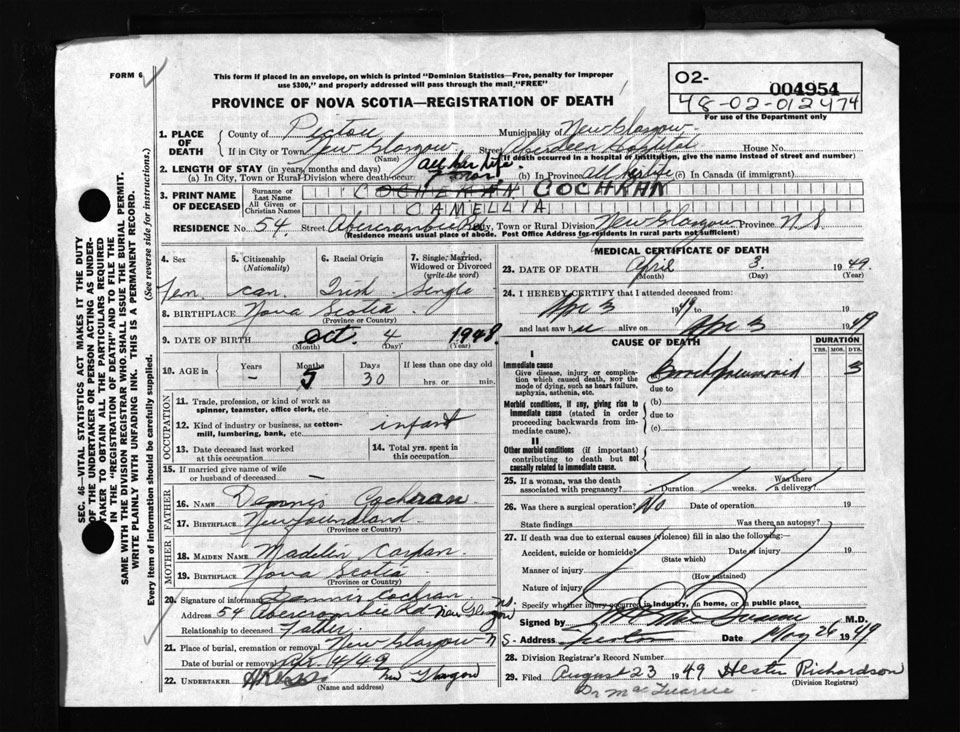 FORM 6
This form if placed in an envelope, on which is printed "Dominion Statistics—Free, penalty for improper
use $300," and properly addressed will pass through the mail, "FREE"
PROVINCE OF NOVA SCOTIA—REGISTRATION OF DEATH
O2-
004954
48-02-012474
For use of the Department only
SEC. 46—VITAL STATISTICS ACT MAKES IT THE DUTY
OF THE UNDERTAKER OR PERSON ACTING AS UNDER-
TAKER TO OBTAIN ALL THE PARTICULARS REQUIRED
IN THE "REGISTRATION OF DEATH" AND TO FILE THE
SAME WITH THE DIVISION REGISTRAR WHO SHALL ISSUE THE BURIAL PERMIT.
WRITE PLAINLY WITH UNFADING INK. THIS IS A PERMANENT RECORD.
Every item of information should be carefully supplied. (See reverse side for instructions.)
1. PLACE OF DEATH
County of Pictou Municipality of New Glasgow
If in City or Town New Glasgow Street Aberdeen Hospital House No.
(Name) (If death occurred in a hospital or institution, give the name instead of street and number)
2. LENGTH OF STAY (in years, months and days)
(a) In City, Town or Rural Division where death occurred All her life (b) In Province All her life (c) In Canada (if immigrant)
3. PRINT NAME OF DECEASED
Surname or Last Name COCHRAN
All Given or Christian Names CAMELLIA
RESIDENCE No. 54 Street Abercrombie Rd City, Town or Rural Division New Glasgow Province N.S.
(Residence means usual place of abode. Post Office Address for residents in rural parts not sufficient)
4. Sex Fem
5. Citizenship (Nationality) Can.
6. Racial Origin Irish
7. Single, Married, Widowed or Divorced (write the word) Single
8. BIRTHPLACE Nova Scotia
(Province or Country)
9. DATE OF BIRTH Oct. 4 1948.
(Month) (Day) (Year)
10. AGE in Years — Months 5 Days 30 If less than one day old hrs. or min.
OCCUPATION
11. Trade, profession, or kind of work as
spinner, teamster, office clerk, etc.
12. Kind of industry or business, as cotton-
mill, lumbering, bank, etc. infant
13. Date deceased last worked
at this occupation
14. Total yrs. spent in
this occupation
15. If married give name of wife
or husband of deceased —
FATHER
16. NAME Dennis Cochran
17. BIRTHPLACE Newfoundland
(Province or Country)
MOTHER
18. MAIDEN NAME Madelin
19. BIRTHPLACE Nova Scotia
(Province or Country)
20. Signature of informant Dennis Cochran
Address 54 Abercrombie Rd New Glasgow N.S.
Relationship to deceased Father
21. Place of burial, cremation or removal New Glasgow N S
Date of burial or removal
22. UNDERTAKER New Glasgow
(Name and address)
MEDICAL CERTIFICATE OF DEATH
23. DATE OF DEATH April 3. 1949.
(Month) (Day) (Year)
24. I HEREBY CERTIFY that I attended deceased from
Apr 3 1949 to
and last saw h er alive on Apr 3 1949
CAUSE OF DEATH
DURATION
YRS. MOS. DYS.
I
Immediate cause
Give disease, injury or complica-
tion which caused death, NOT the
mode of dying, such as heart failure,
asphyxia, asthenia, etc.
3
due to
Morbid conditions, if any, giving rise to
immediate cause (stated in order
proceeding backwards from im-
mediate cause).
(b)
due to
(c)
II
Other morbid conditions (if important)
contributing to death but not
causally related to immediate cause.
25. If a woman, was the death
associated with pregnancy? Duration weeks. Was there a delivery?
26. Was there a surgical operation? No Date of operation 19
State findings Was there an autopsy?
27. If death was due to external causes (violence) fill in also the following:—
Accident, suicide or homicide? Date of injury 19
(State which)
Manner of injury
(How sustained)
Nature of injury
Specify whether injury occurred in industry, in home, or in public place.
Signed by M.D.
Address Date May 26 1949
28. Division Registrar's Record Number
29. Filed August 23 1949 Hester Richardson
(Division Registrar)